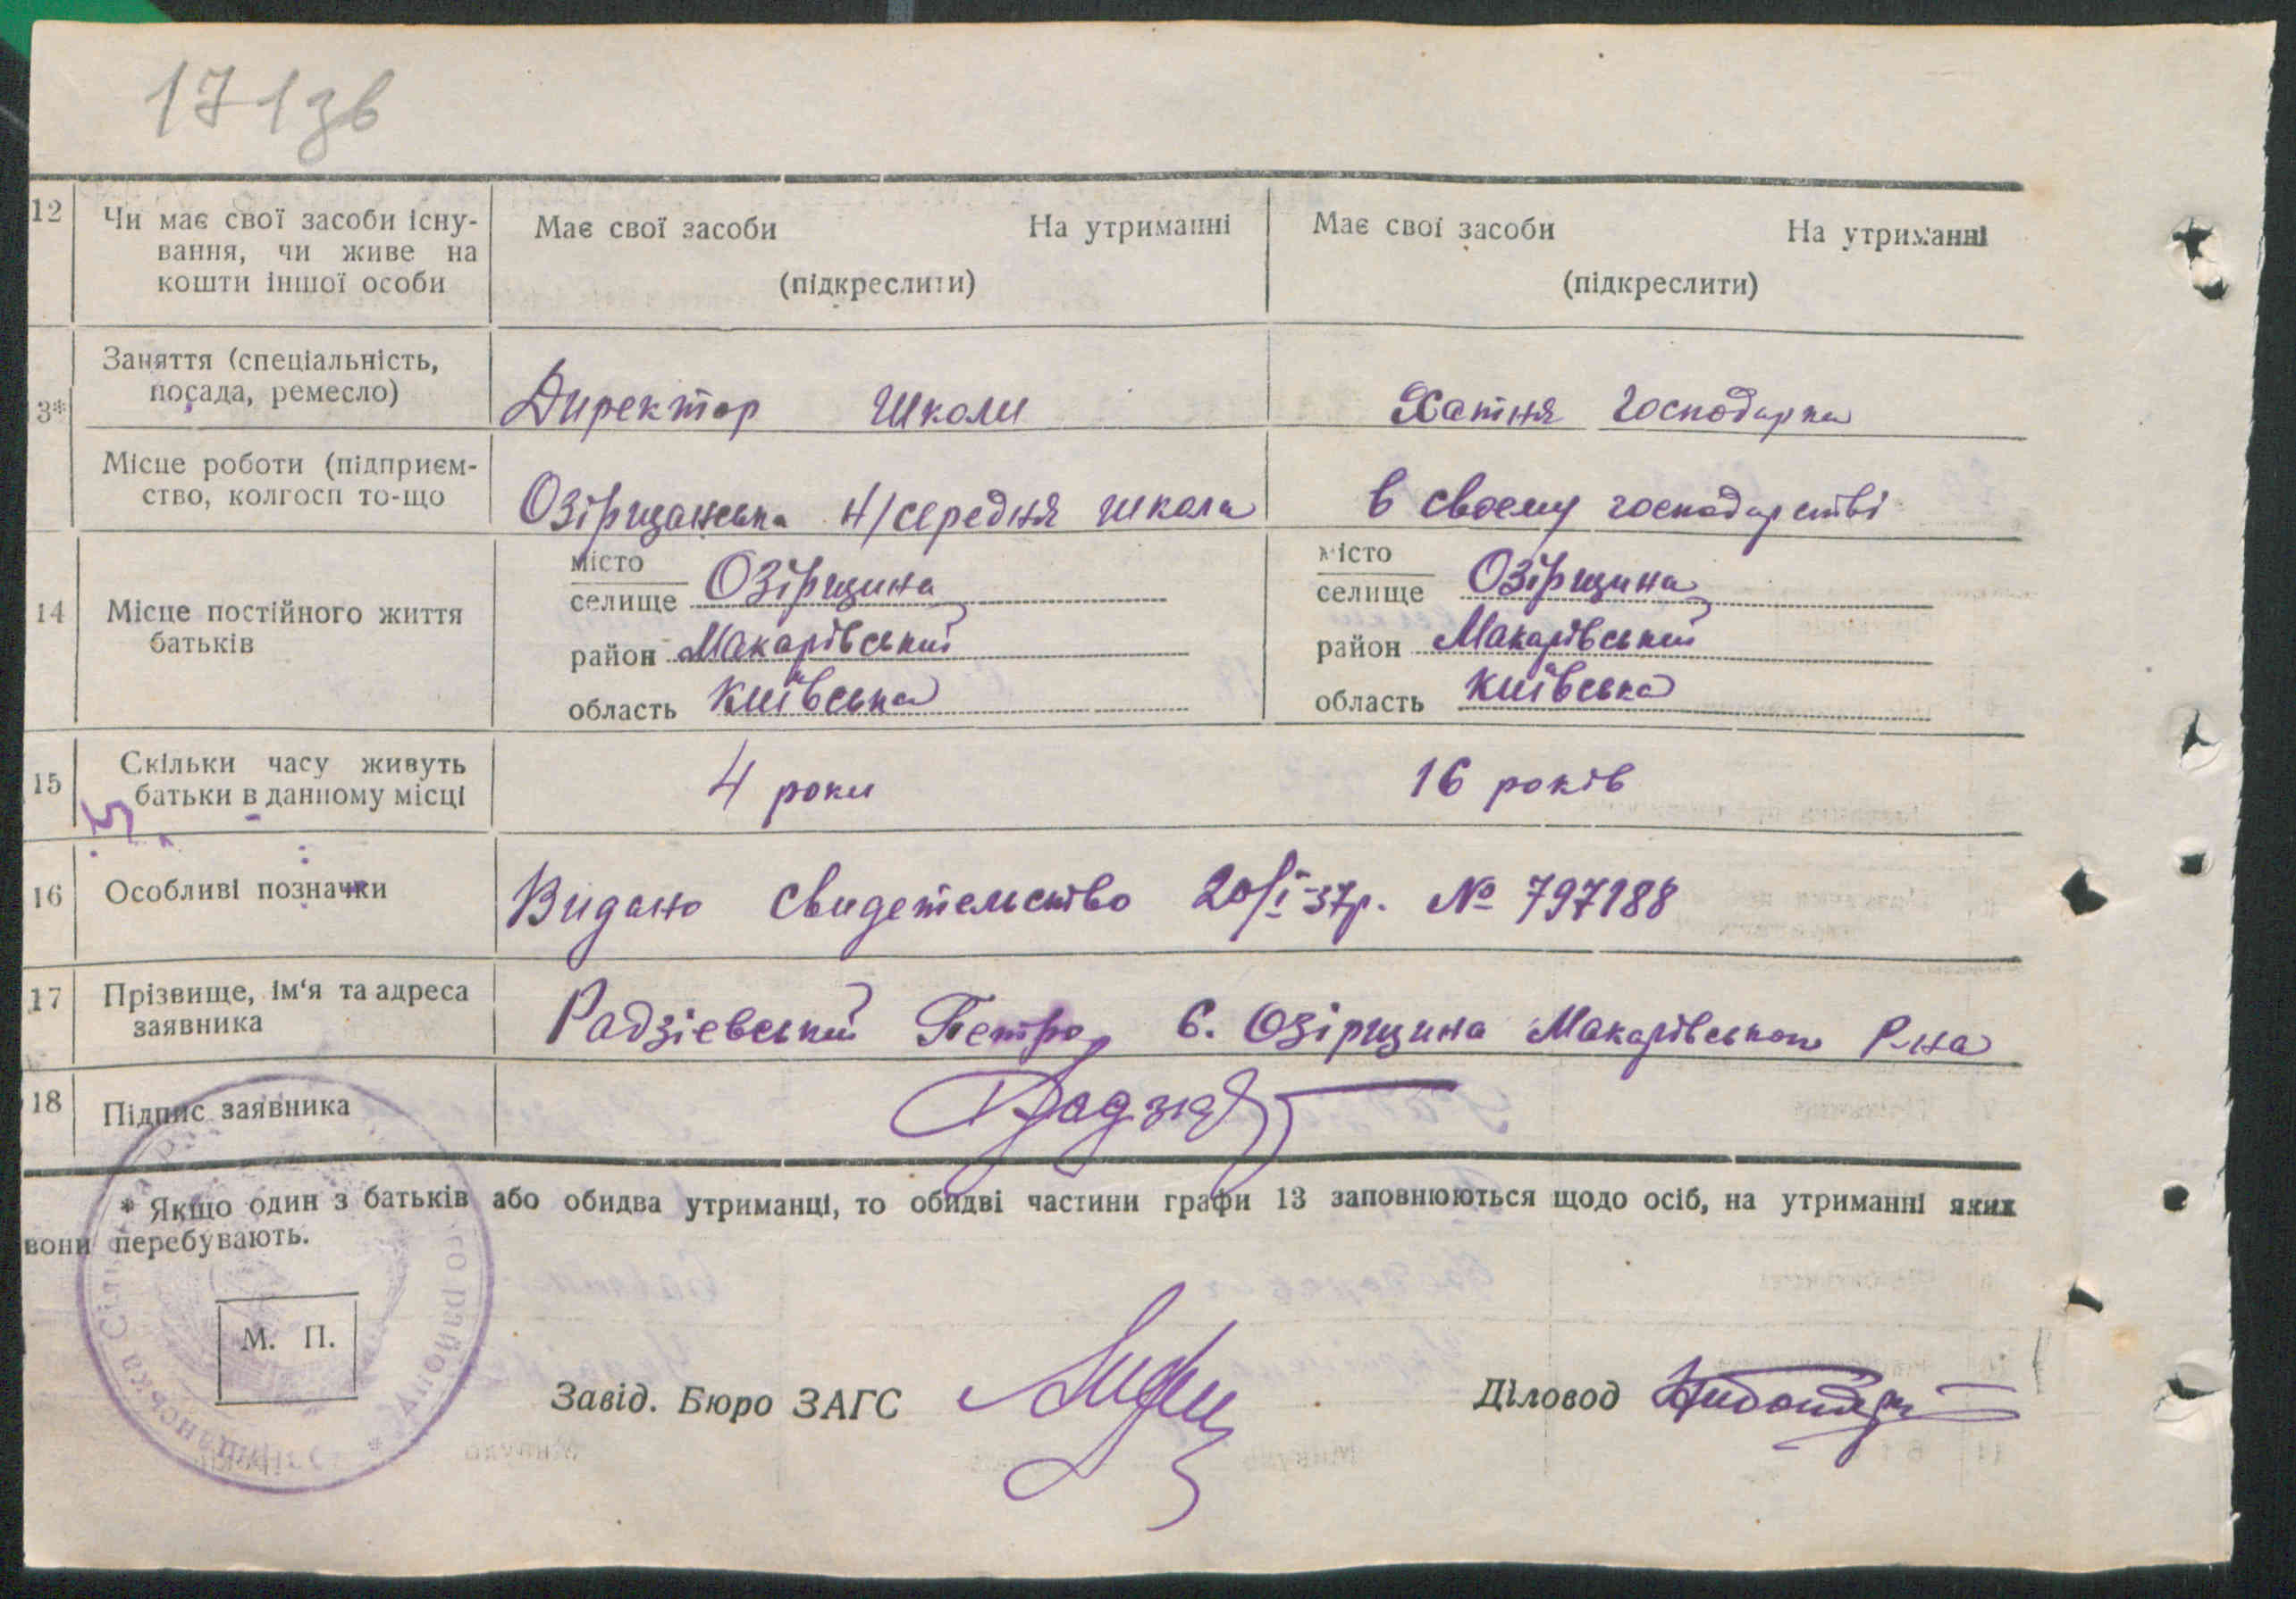 171зв
12 Чи має свої засоби існу- Має свої засоби На утриманні Має свої засоби На утриманні
вання, чи живе на
кошти іншої особи (підкреслити) (підкреслити)
Заняття (спеціальність,
посада, ремесло) Директор Школи Хатня господарка
3*
Місце роботи (підприєм-
ство, колгосп то-що Озірщанська н/середня школа в своєму господарстві
місто місто
селище Озірщина селище Озірщина
14 Місце постійного життя
батьків район Макарівський район Макарівський
область Київська область Київська
15 Скільки часу живуть
батьки в данному місці 4 роки 16 років
16 Особливі позначки Видано свидетельство 20/I-37р. № 797188
17 Прізвище, ім‘я та адреса
заявника Радзієвський Петро, с. Озірщина Макарівського Р-на
18 Підпис заявника
* Якщо один з батьків або обидва утриманці, то обидві частини графи 13 заповнюються щодо осіб, на утриманні яких
вони перебувають.
М. П.
Завід. Бюро ЗАГС Діловод